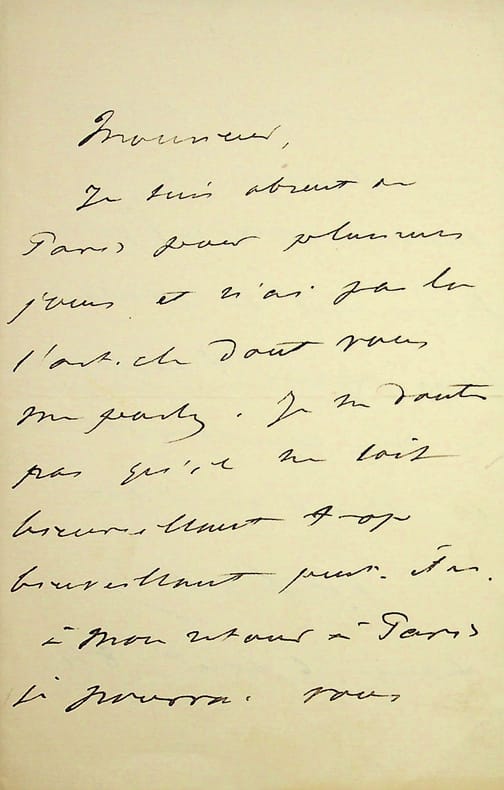 Monsieur,
Je suis absent de
Paris pour plusieurs
jours et n'ai pas lu
l'article dont vous
me parlez. Je ne doute
pas qu'il ne soit
bienveillant trop
bienveillant peut-être.
à mon retour à Paris
je pourrai vous